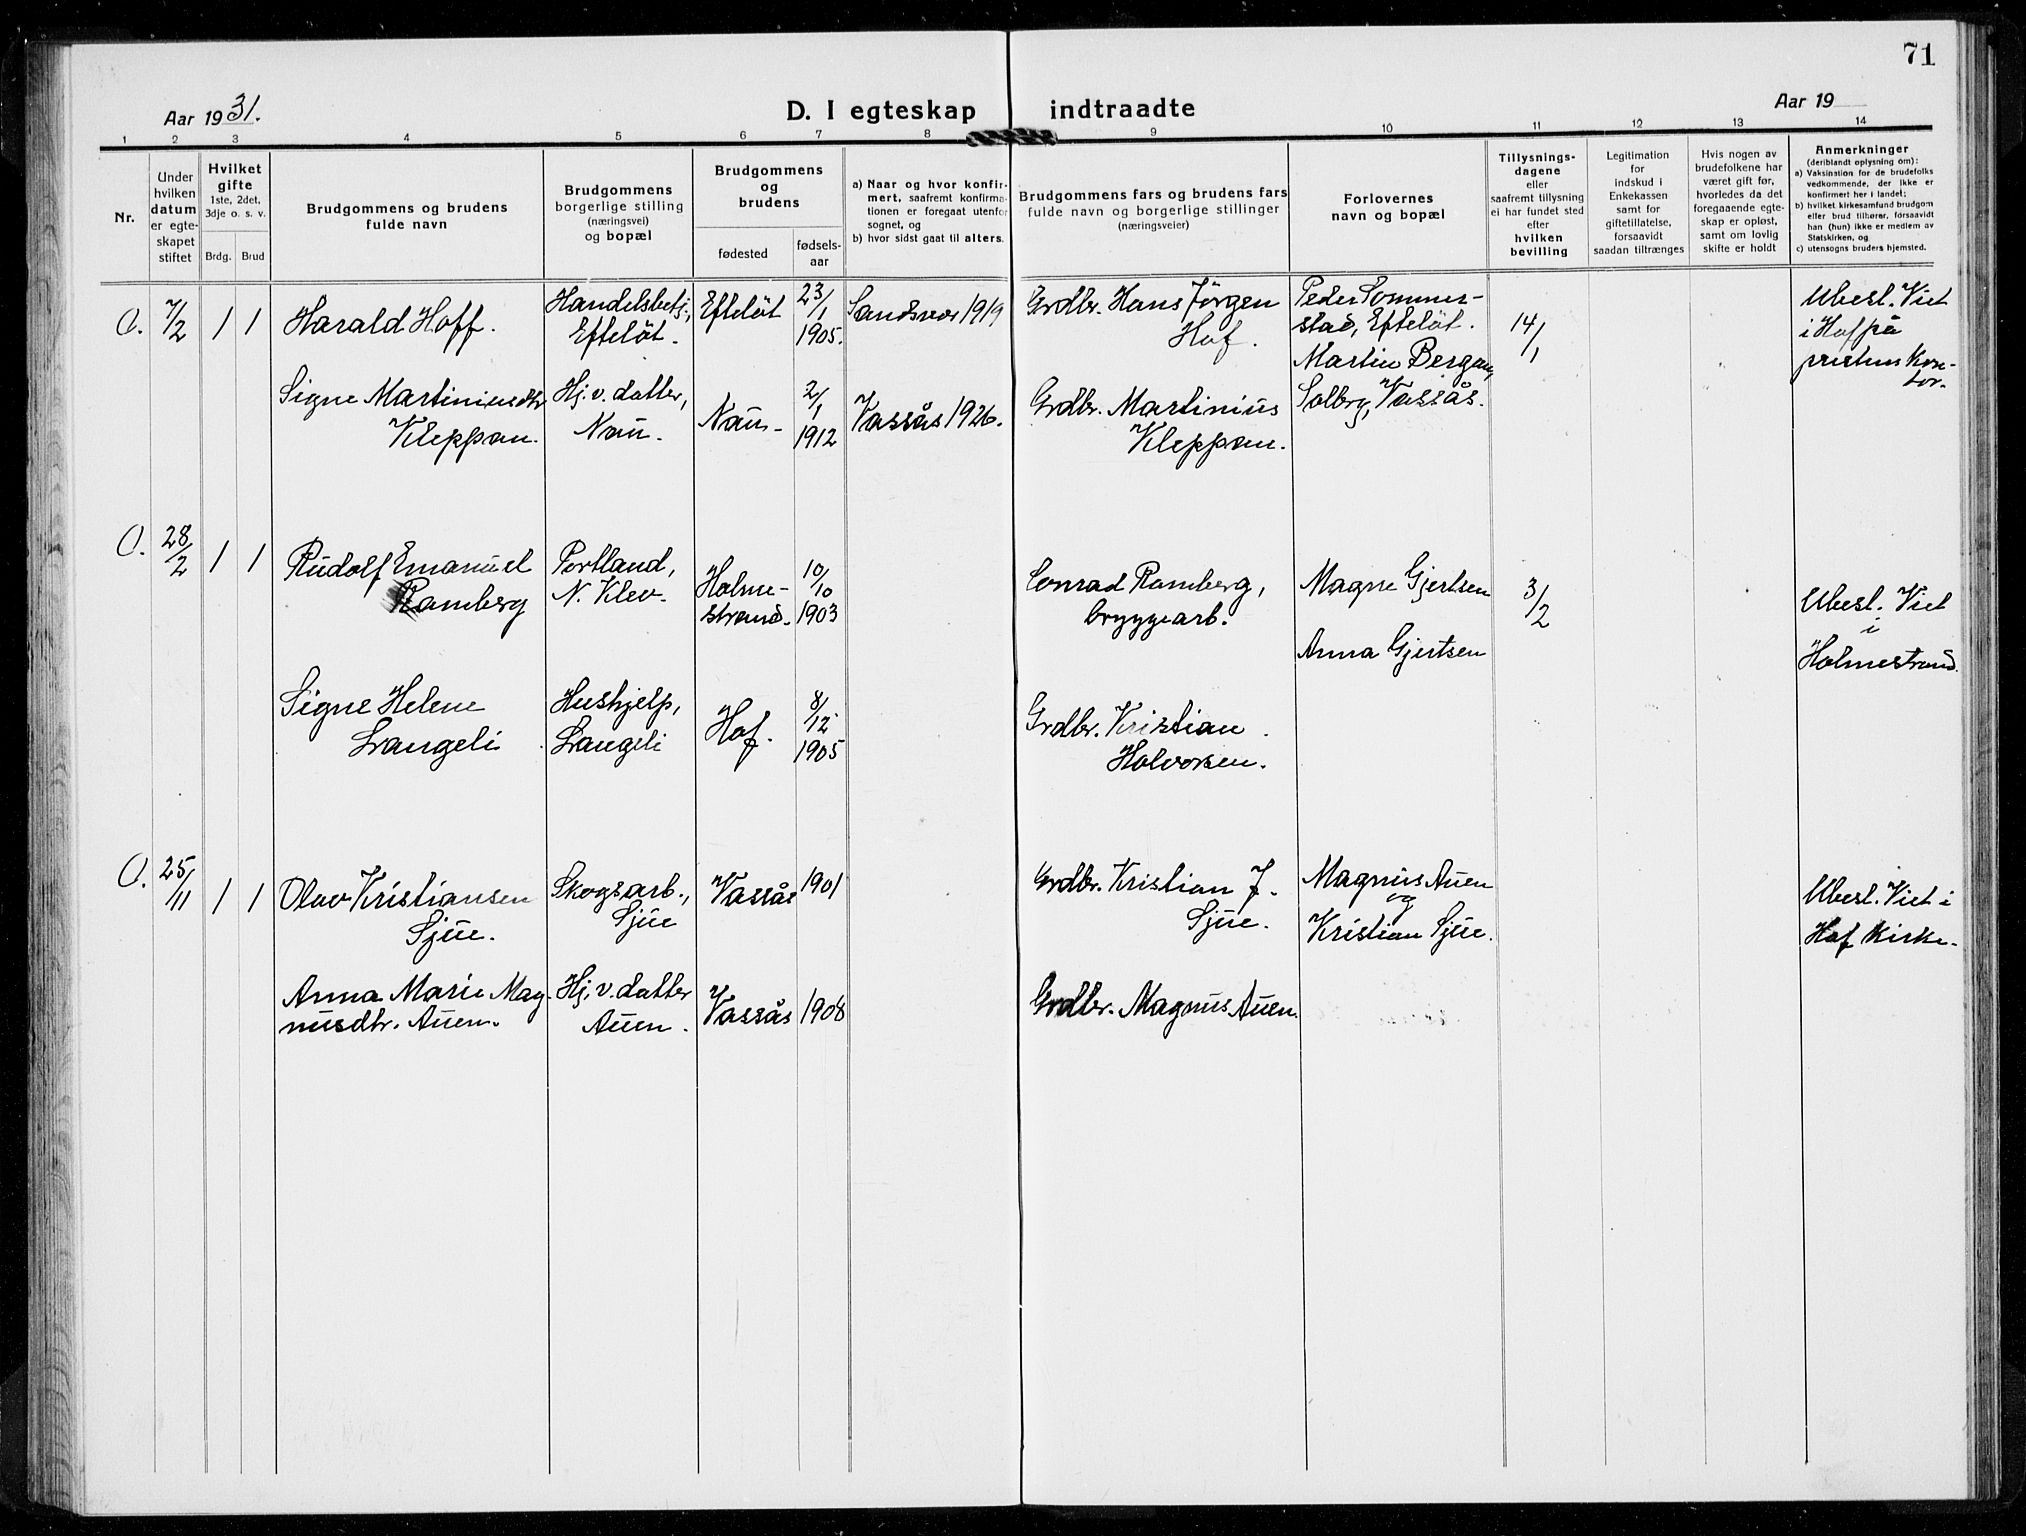 71
Aar 1931.
D. I egteskap indtraadte
Aar 19
1 2 3 4 5 6 7 8 9 10 11 12 13 14
Nr.
Under
hvilken
datum
er egte-
skapet
stiftet
Hvilket
gifte
1ste, 2det,
3dje o. s. v.
Brdg. Brud
Brudgommens og brudens
fulde navn
Brudgommens
borgerlige stilling
(næringsvei)
og bopæl
Brudgommens
og
brudens
fødested
fødsels-
aar
a) Naar og hvor konfir-
mert, saafremt konfirma-
tionen er foregaat utenfor
sognet, og
b) hvor sidst gaat til alters.
Brudgommens fars og brudens fars
fulde navn og borgerlige stillinger
(næringsveier)
Forlovernes
navn og bopæl
Tillysnings-
dagene
eller
saafremt tillysning
ei har fundet sted
efter
hvilken
bevilling
Legitimation
for
indskud i
Enkekassen
samt for
giftetillatelse,
forsaavidt
saadan tiltrænges
Hvis nogen av
brudefolkene har
været gift før,
hvorledes da det
foregaaende egte-
skap er opløst,
samt om lovlig
skifte er holdt
Anmerkninger
(deriblandt oplysning om):
a) Vaksination for de brudefolks
vedkommende, der ikke er
konfirmert her i landet;
b) hvilket kirkesamfund brudgom
eller brud tilhører, forsaavidt
han (hun) ikke er medlem av
Statskirken, og
c) utensogns bruders hjemsted.
O. 7/2 1 1
Harald Hoff.
Handelsbetj.,
Efteløt.
Efteløt
23/1
1905.
Sandsvær 1919
Grdbr. Hans Jörgen
Hof.
Peder Sommer-
stad, Efteløt.
Martin Bergan,
Solberg, Vassås.
14/1
Ubesl. Viet
i Hof på
prestens kon-
tor.
Signe Martiniusdtr
Kleppan.
Hj. v. datter,
Nau.
Nau.
2/1
1912
Vassås 1926.
Grdbr. Martinius
Kleppan.
O. 28/2 1 1
Rudolf Emanuel
Ramberg
Portland,
N. Klev.
Holme-
strand.
10/10
1903
Conrad Ramberg,
bryggearb.
Magne Gjertsen
Anna Gjertsen
3/2
Ubesl. Viet
i
Holmestrand.
Signe Helene
Langeli
Hushjelp,
Langeli
Hof.
8/12
1905
Grdbr. Kristian
Halvorsen.
O. 25/11 1 1
Olav Kristiansen
Sjue.
Skogsarb.,
Sjue
Vassås
1901
Grdbr. Kristian J.
Sjue.
Magnus Auen
og
Kristian Sjue.
Ubesl. Viet i
Hof kirke.
Anna Marie Mag-
nusdtr. Auen.
Hj. v. datter
Auen.
Vassås
1908
Grdbr. Magnus Auen.